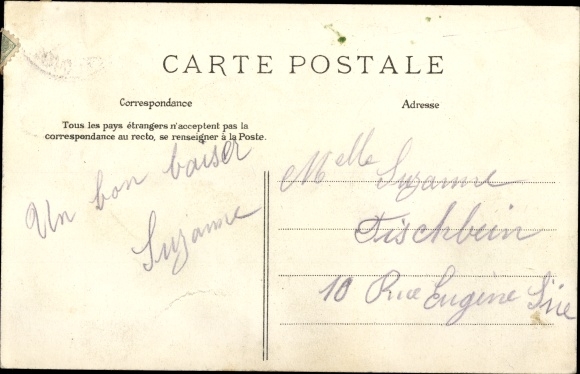 CARTE POSTALE
Correspondance
Adresse
Tous les pays étrangers n'acceptent pas la
correspondance au recto, se renseigner à la Poste.
Un bon baiser
Suzanne
Melle Suzanne
Fischbein
10 Rue Eugène Süe